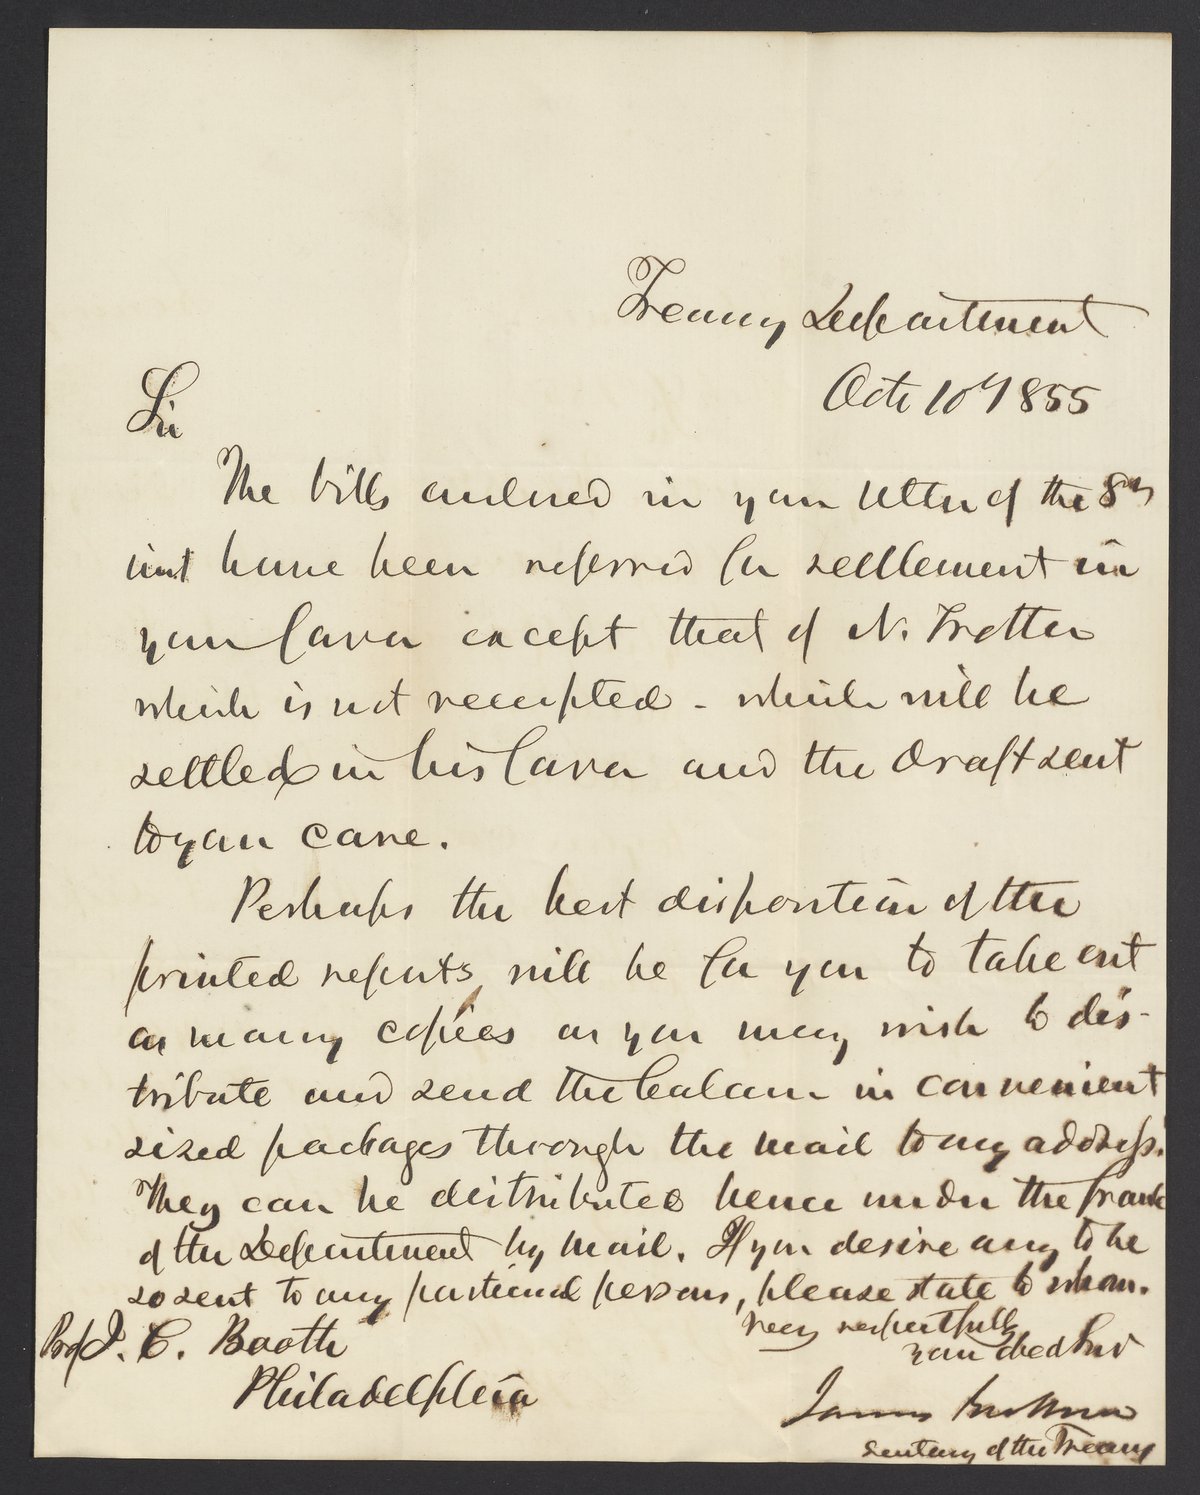 Treasury Department
Oct 10 1855
Sir
The bills enclosed in your letter of the 8th
inst have been referred for settlement in
your favor except that of N. Trotter
which is not receipted - which will be
settled in his favor and the draft sent
to your care.
Perhaps the best disposition of the
printed reports will be for you to take out
as many copies as you may wish to dis-
tribute and send the balance in convenient
sized packages through the mail to my address.
They can be distributed hence under the frank
of the Department by mail. If you desire any to be
so sent to any particular persons, please state to whom.
Very respectfully
your obed Svt
James Guthrie
Secretary of the Treasury
Prof J. C. Booth
Philadelphia